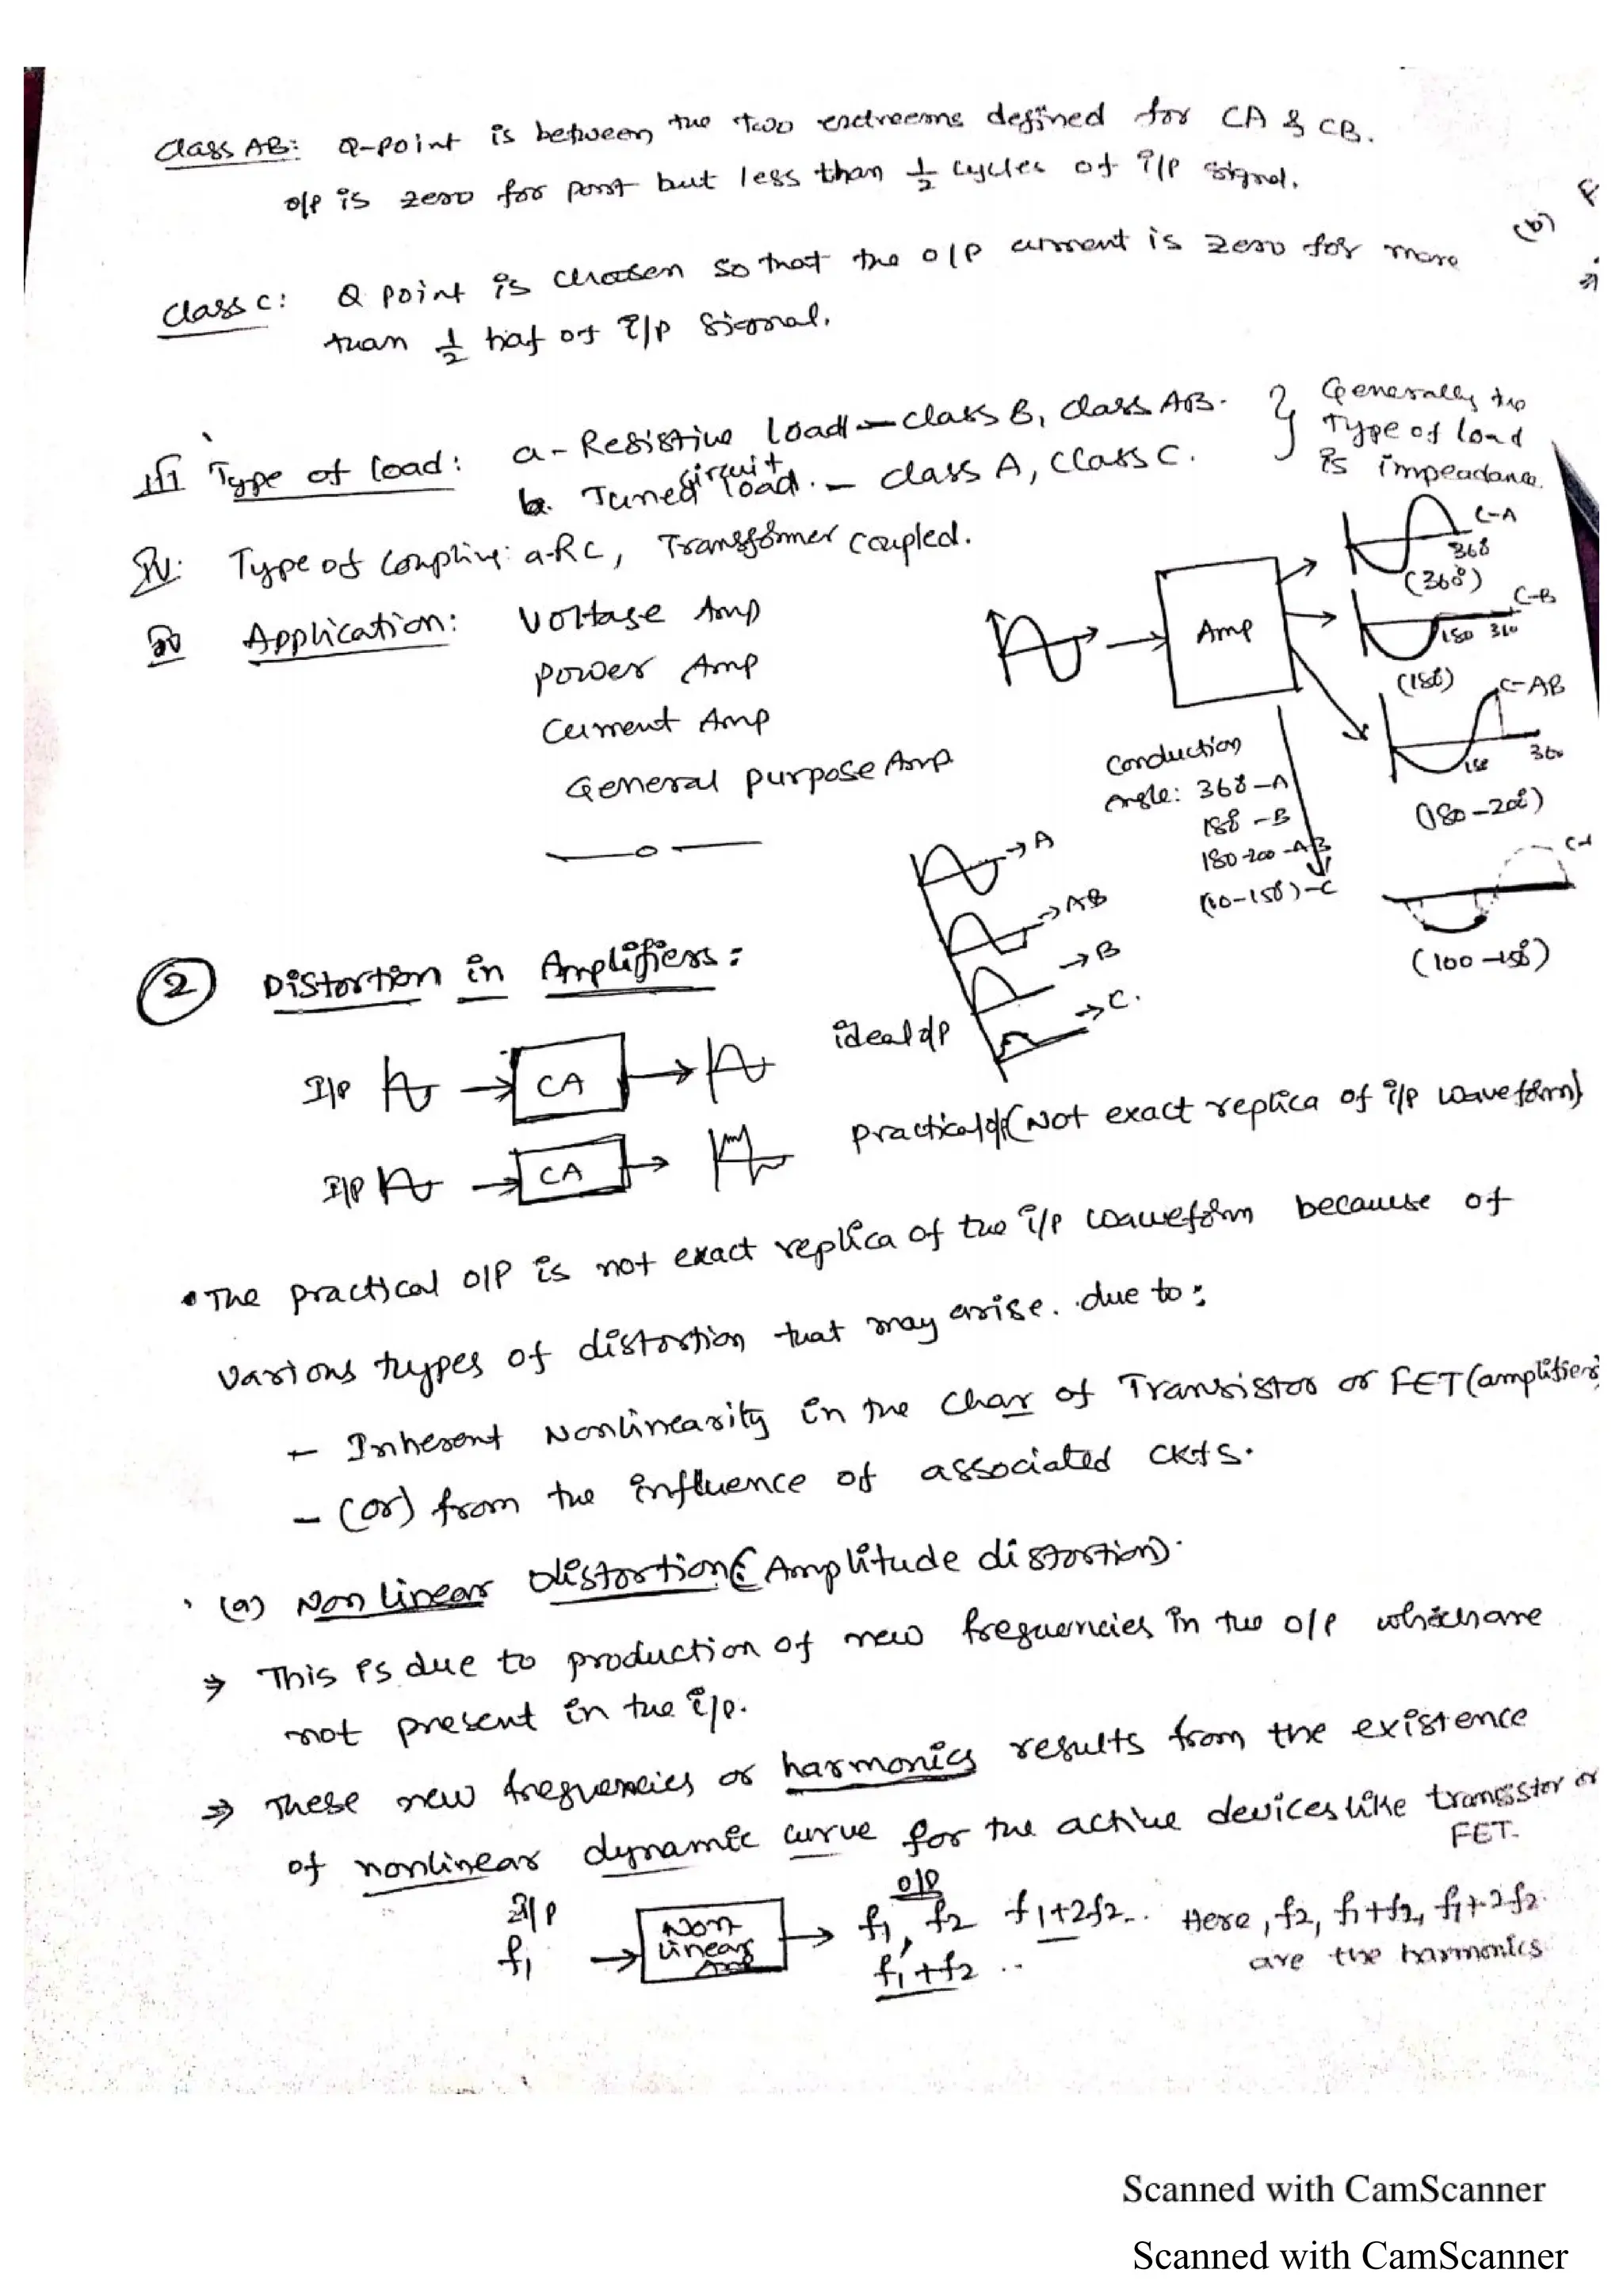 Class AB: Q-point is between the two extreems defined for CA & CB.
o/p is zero for part but less than 1/2 cycles of i/p signal.
(b) F
Class C: Q point is choosen so that the o/p current is zero for more
than 1/2 haf of i/p signal.
III Type of load: a- Resistive load - class B, class AB.
b. Tuned circuit load. - class A, class C.
Generally the
Type of load
is impeadance.
IV. Type of coupling: a-RC, Transformer coupled.
V Application: Voltage Amp
Power Amp
Current Amp
General purpose Amp
Amp
C-A
360
(360°)
C-B
180 360
(180)
C-AB
180 360
(180-200)
C-
(100-150)
Conduction
Angle: 360-A
180-B
180-200-AB
(10-150)-C
A
AB
B
C.
2 Distortion in Amplifiers:
I/P CA ideal o/p
I/P CA Practical o/p (Not exact replica of i/p waveform)
• The practical O/P is not exact replica of the i/p waveform because of
various types of distortion that may arise. due to:
- Inherent Nonlinearity in the Char of Transistor or FET (amplifier)
- (or) from the influence of associated CKTS.
(a) Non linear Distortion: (Amplitude distortion).
⇒ This is due to production of new frequencies in the o/p which are
not present in the i/p.
⇒ These new frequencies or harmonics results from the existence
of nonlinear dynamic curve for the active devices like transistor or
FET.
I/P
f1
Non-
Linear
Amp
O/P
f1, f2 f1+2f2...
f1+f2 ..
Here, f2, f1+f2, f1+2f2
are the harmonics
Scanned with CamScanner
Scanned with CamScanner